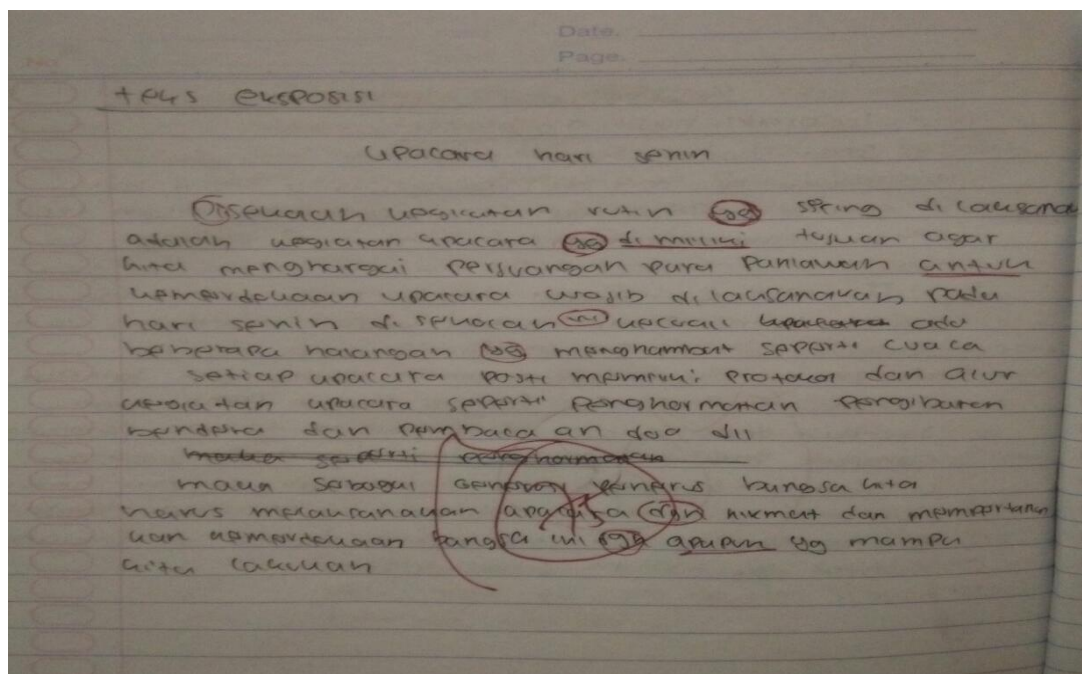 Date.
Page.
No
teks eksposisi
upacara hari senin
kegiatan rutin yg sering di laksana
adalah kegiatan upacara yg di miliki tujuan agar
kita menghargai perjuangan para pahlawan untuk
kemerdekaan upacara wajib dilaksanakan pada
hari senin di sekolah kecuali upacara ada
beberapa halangan yg menghambat seperti cuaca
setiap upacara pasti memiliki protokol dan alur
kegiatan upacara seperti penghormatan pengibaran
bendera dan pembaca an doa dll
maka seperti penghormatan
maka sebagai generasi penerus bangsa kita
harus melaksanakan upacara dgn hikmat dan mempertahan
kan kemerdekaan bangsa ini dgn apapun yg mampu
kita lakukan